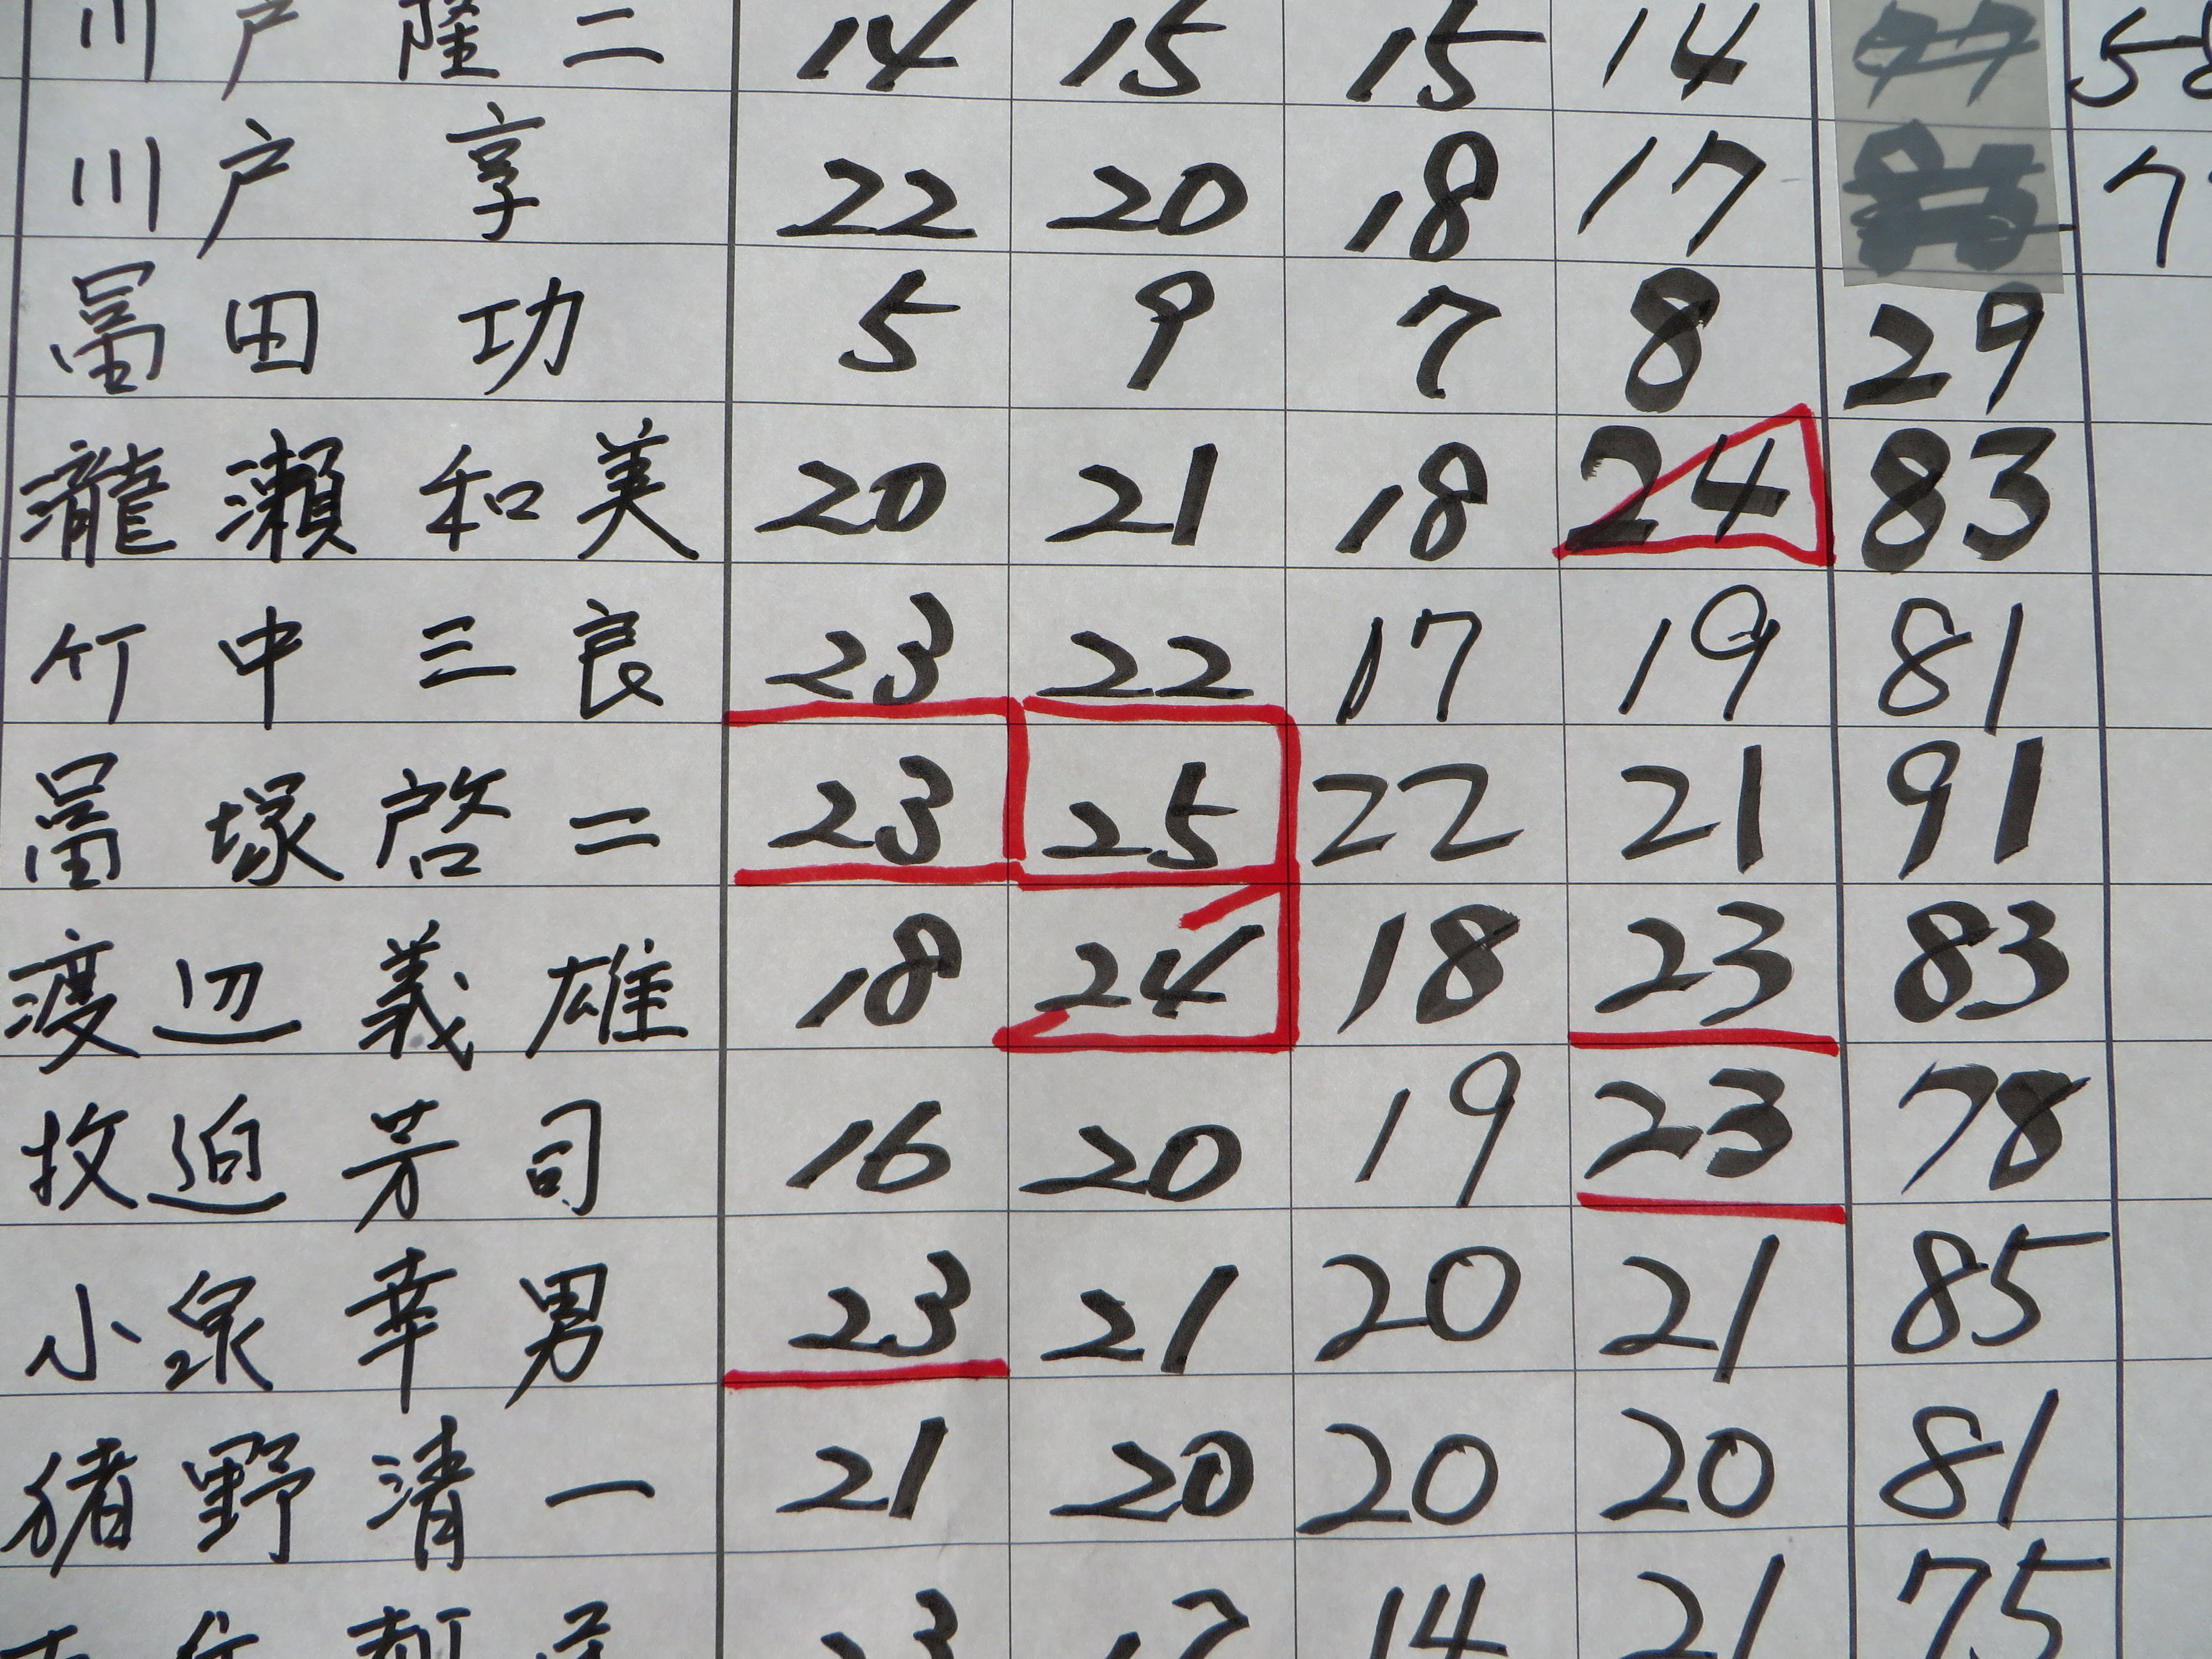 川戸隆二 14 15 15 14 58
川戸享 22 20 18 17 7
冨田功 5 9 7 8 29
瀧瀬和美 20 21 18 24 83
竹中三良 23 22 17 19 81
冨塚啓二 23 25 22 21 91
渡辺義雄 18 24 18 23 83
牧迫芳司 16 20 19 23 78
小泉幸男 23 21 20 21 85
猪野清一 21 20 20 20 81
23 17 14 21 75